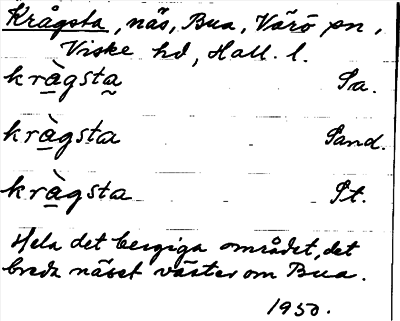 Krågsta, näs, Bua, Värö sn,
Viske hd, Hall. l.
kràgsta Sa.
kràgsta Sand.
kràgsta St.
Hela det bergiga området, det
breda näset väster om Bua.
1950.